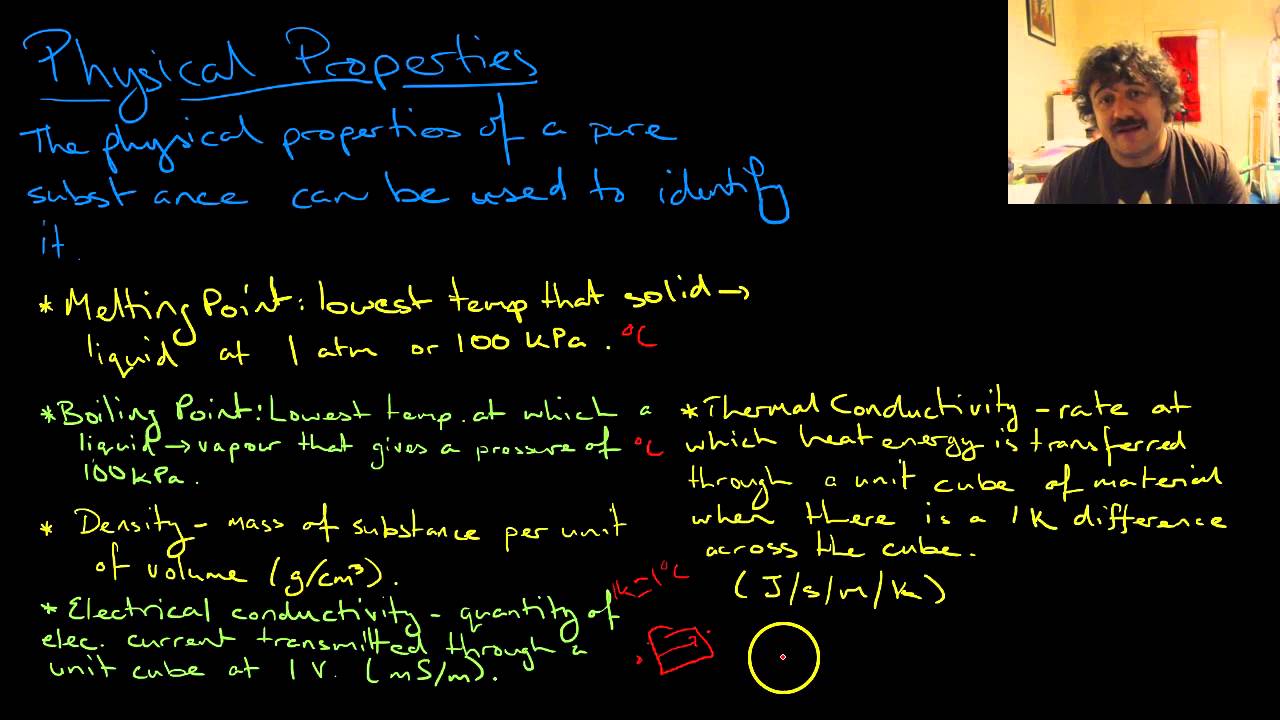 Physical Properties
The physical properties of a pure
substance can be used to identify
it.
* Melting Point: lowest temp that solid →
liquid at 1 atm or 100 kPa. °C
* Boiling Point: Lowest temp. at which a
liquid → vapour that gives a pressure of °C
100 kPa.
* Density - mass of substance per unit
of volume (g/cm³).
1k=1°C
* Electrical conductivity - quantity of
elec. current transmitted through a
unit cube at 1 V. (mS/m).
* Thermal Conductivity - rate at
which heat energy is transferred
through a unit cube of material
when there is a 1k difference
across the cube.
(J/s/m/k)